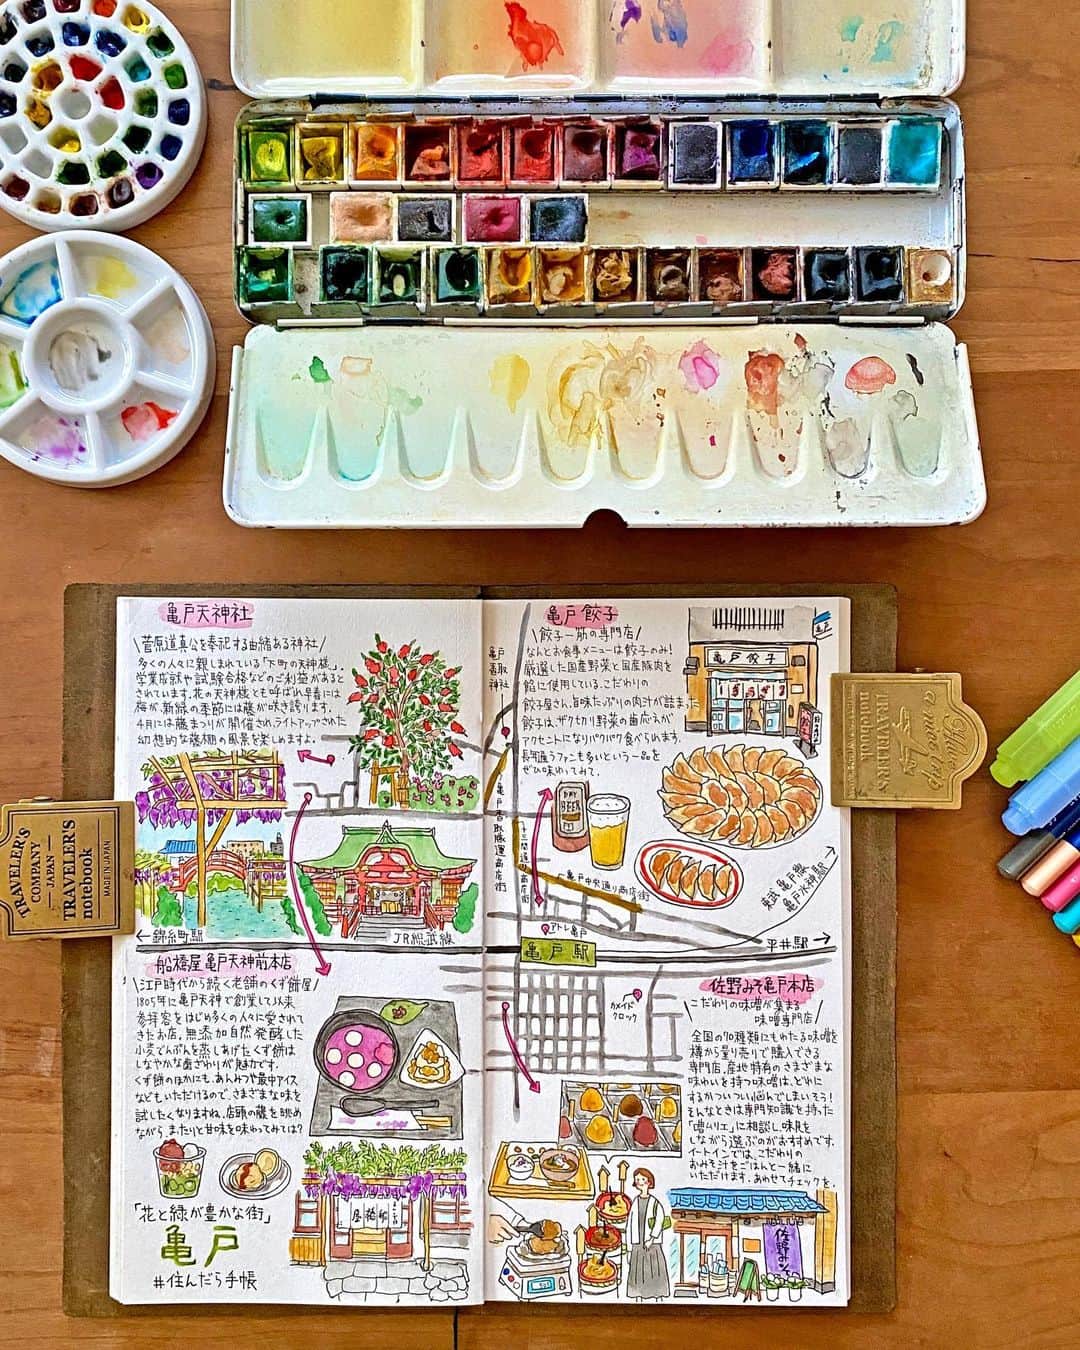 亀戸天神社
\菅原道真公を奉祀する由緒ある神社/
多くの人々に親しまれている「下町の天神様」。
学業成就や試験合格などのご利益があると
されています。花の天神様とも呼ばれ、早春には
梅が、新緑の季節には藤が咲き誇ります。
4月には藤まつりが開催され、ライトアップされた
幻想的な藤棚の風景を楽しめますよ。
←錦糸町駅
JR総武線
船橋屋 亀戸天神前本店
\江戸時代から続く老舗のくず餅屋/
1805年に亀戸天神で創業して以来
参拝客をはじめ多くの人々に愛されて
きたお店。無添加自然発酵した
小麦でんぷんを蒸しあげたくず餅は
しなやかな歯ざわりが魅力です。
くず餅のほかにも、あんみつや最中アイス
などもいただけるので、さまざまな味を
試したくなりますね。店頭の藤を眺め
ながら、まったりと甘味を味わってみては?
「花と緑が豊かな街」
亀戸
#住んだら手帳
亀戸餃子
\餃子一筋の専門店/
なんとお食事メニューは餃子のみ!
厳選した国産野菜と国産豚肉を
餡に使用している、こだわりの
餃子屋さん。旨味たっぷりの肉汁が詰まった
餃子は、ザクザク切り野菜の歯応えが
アクセントになりパクパク食べられます。
長年通うファンも多いという一品を
ぜひ味わってみて。
亀戸餃子
亀戸
亀戸香取神社
亀戸香取勝運商店街
十三間通り商店街
亀戸中央通り商店街
DRY
BEER
東武亀戸線
亀戸水神駅
アトレ亀戸
亀戸駅
平井駅→
カメイド
クロック
佐野みそ亀戸本店
\こだわりの味噌が集まる
味噌専門店/
全国の70種類にもわたる味噌を
樽から量り売りで購入できる
専門店。産地特有のさまざまな
味わいを持つ味噌は、どれに
するかついつい悩んでしまいそう!
そんなときは専門知識を持った
「噌ムリエ」に相談し、味見を
しながら選ぶのがおすすめです。
イートインでは、こだわりの
おみそ汁をごはんと一緒に
いただけます。あわせてチェックを。
佐野みそ
屋橋船
TRAVELER'S
COMPANY
JAPAN
TRAVELER'S
notebook
MADE IN JAPAN
TRAVELER'S
notebook